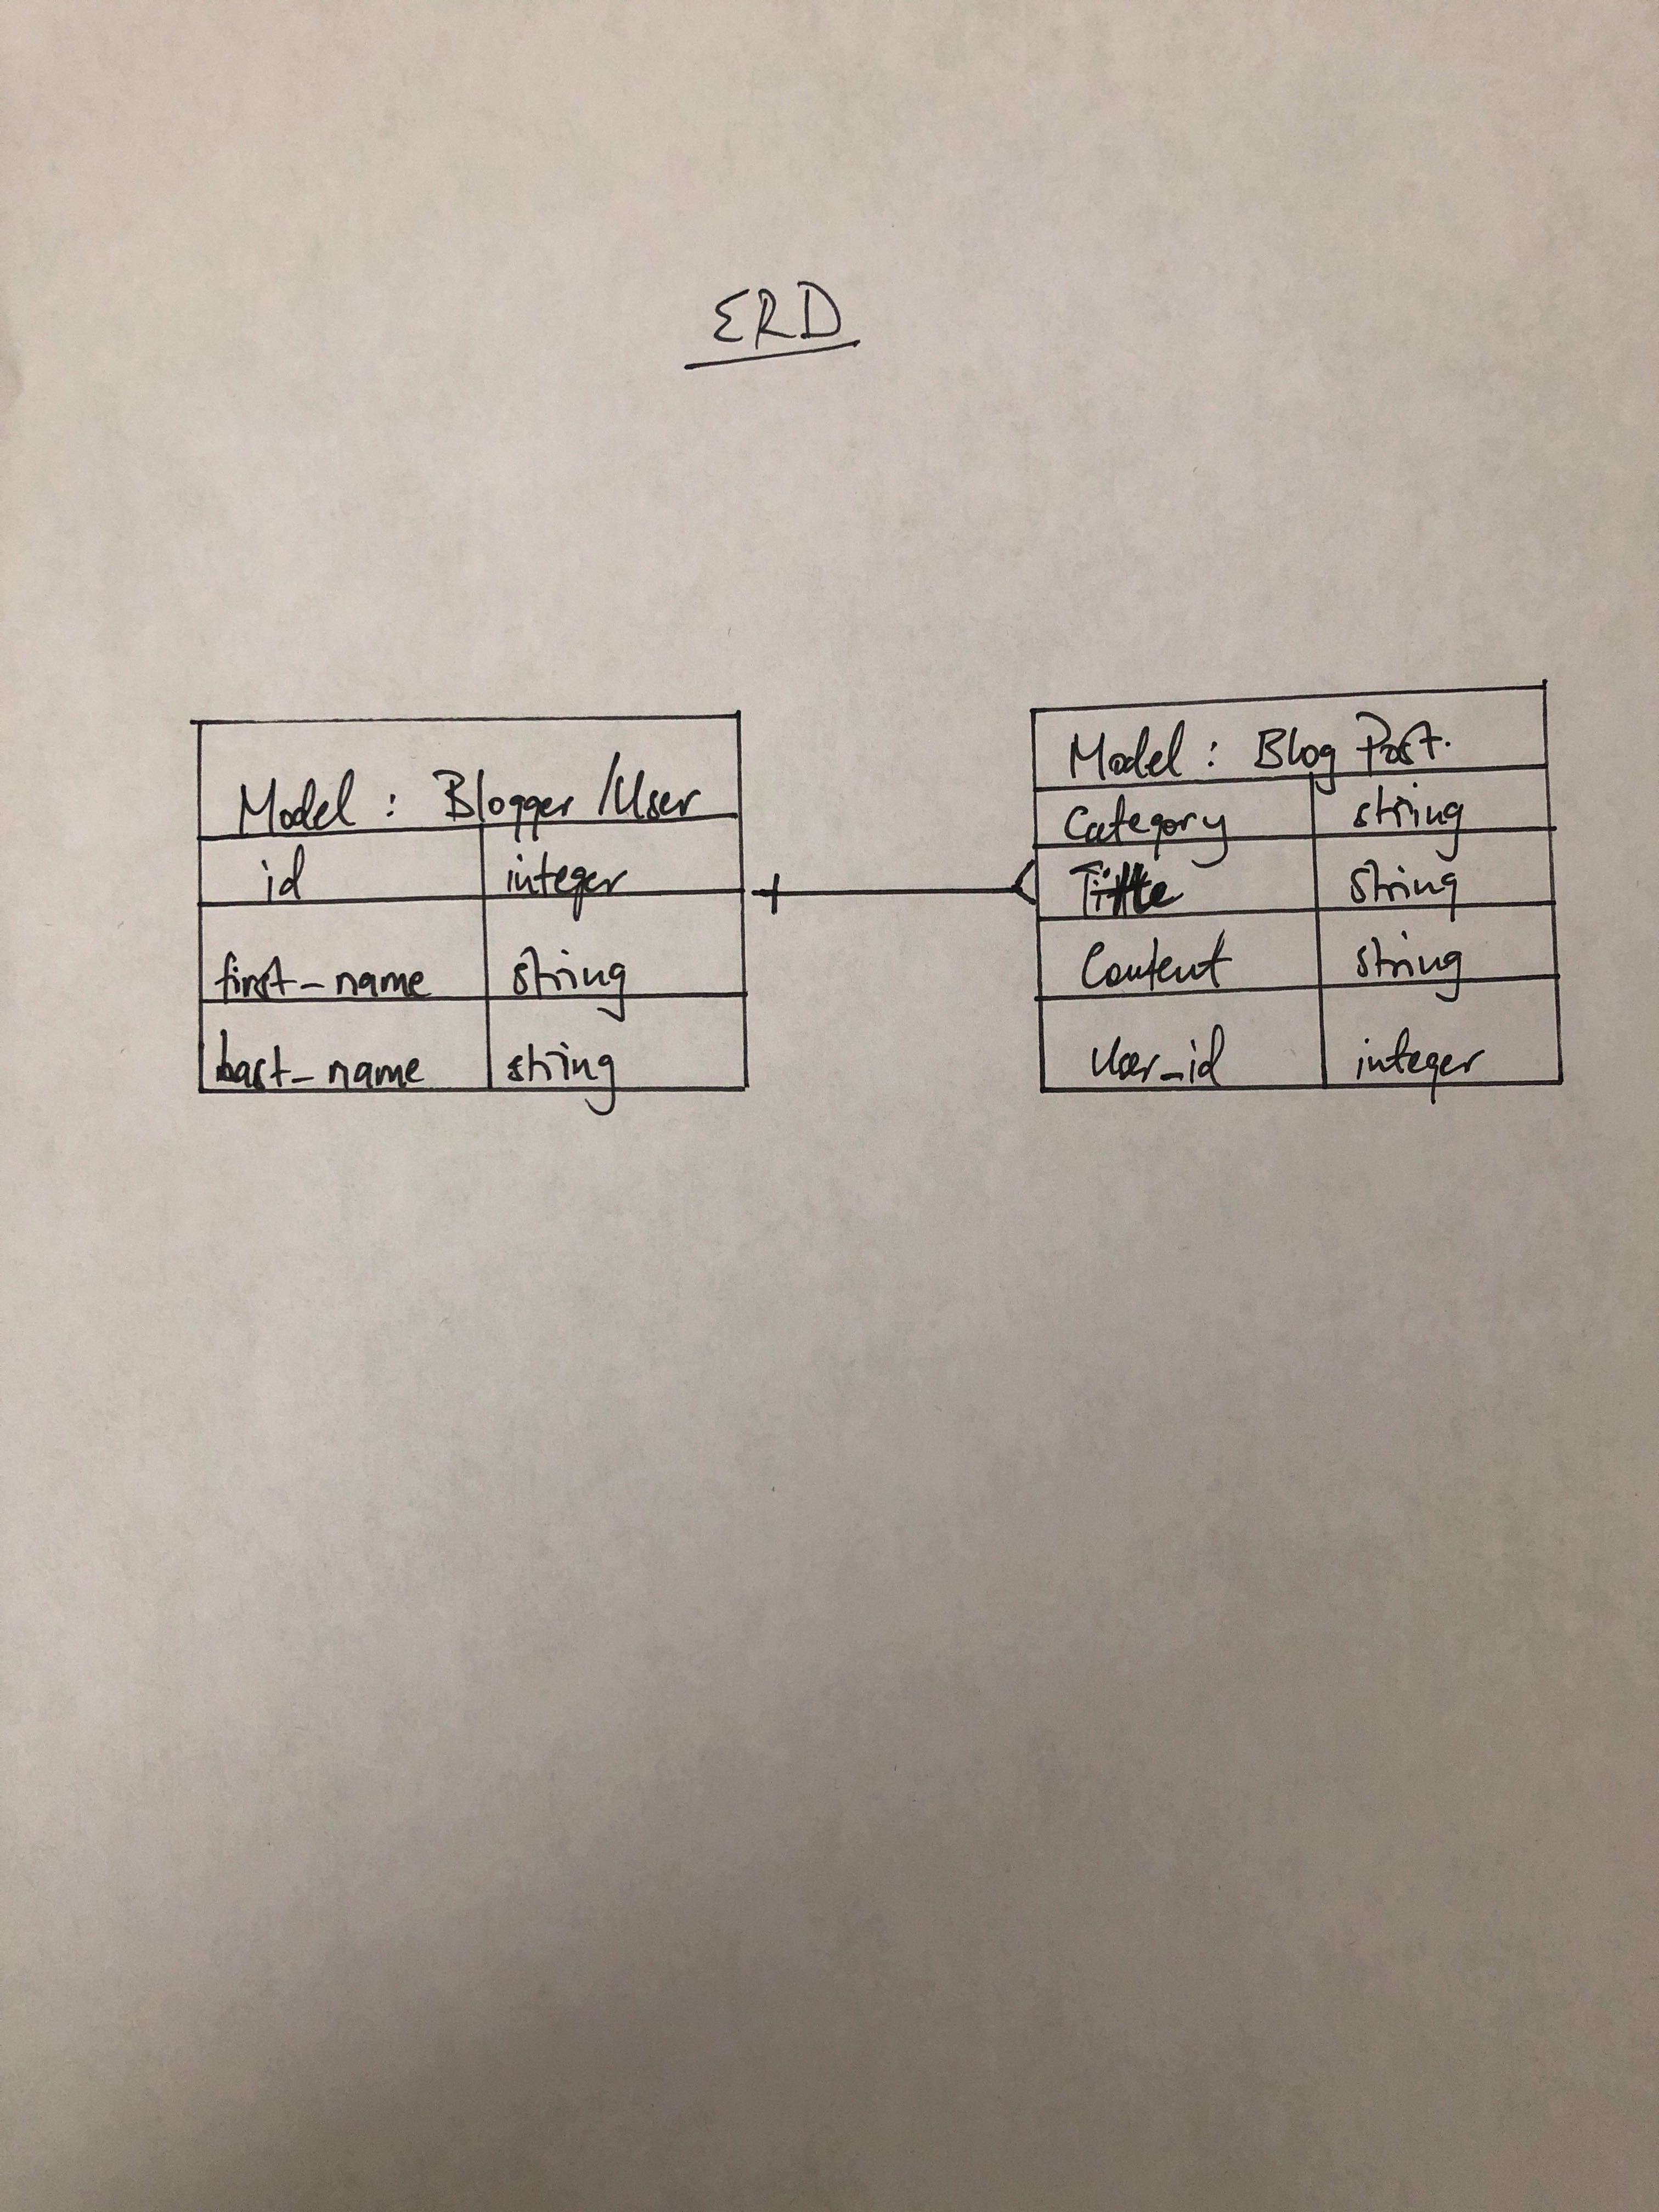 ERD
Model : Blogger /User
id integer
first_name string
last_name string
Model : Blog Post.
Category string
Title string
Content string
User_id integer